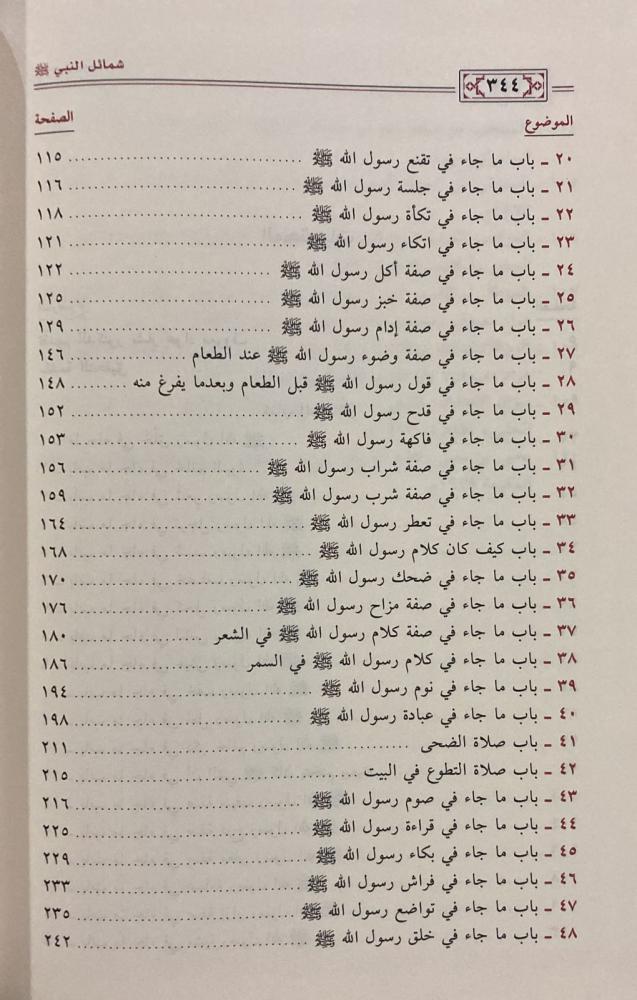 شمائل النبي ﷺ
٣٤٤
الموضوع الصفحة
٢٠ ـ باب ما جاء في تقنع رسول الله ﷺ ........ ١١٥
٢١ ـ باب ما جاء في جلسة رسول الله ﷺ ........ ١١٦
٢٢ ـ باب ما جاء في تكأة رسول الله ﷺ ........ ١١٨
٢٣ ـ باب ما جاء في اتكاء رسول الله ﷺ ........ ١٢١
٢٤ ـ باب ما جاء في صفة أكل رسول الله ﷺ ........ ١٢٢
٢٥ ـ باب ما جاء في صفة خبز رسول الله ﷺ ........ ١٢٥
٢٦ ـ باب ما جاء في صفة إدام رسول الله ﷺ ........ ١٢٩
٢٧ ـ باب ما جاء في صفة وضوء رسول الله ﷺ عند الطعام ........ ١٤٦
٢٨ ـ باب ما جاء في قول رسول الله ﷺ قبل الطعام وبعدما يفرغ منه ........ ١٤٨
٢٩ ـ باب ما جاء في قدح رسول الله ﷺ ........ ١٥٢
٣٠ ـ باب ما جاء في فاكهة رسول الله ﷺ ........ ١٥٣
٣١ ـ باب ما جاء في صفة شراب رسول الله ﷺ ........ ١٥٦
٣٢ ـ باب ما جاء في صفة شرب رسول الله ﷺ ........ ١٥٩
٣٣ ـ باب ما جاء في تعطر رسول الله ﷺ ........ ١٦٤
٣٤ ـ باب كيف كان كلام رسول الله ﷺ ........ ١٦٨
٣٥ ـ باب ما جاء في ضحك رسول الله ﷺ ........ ١٧٠
٣٦ ـ باب ما جاء في صفة مزاح رسول الله ﷺ ........ ١٧٦
٣٧ ـ باب ما جاء في صفة كلام رسول الله ﷺ في الشعر ........ ١٨٠
٣٨ ـ باب ما جاء في كلام رسول الله ﷺ في السمر ........ ١٨٦
٣٩ ـ باب ما جاء في نوم رسول الله ﷺ ........ ١٩٤
٤٠ ـ باب ما جاء في عبادة رسول الله ﷺ ........ ١٩٨
٤١ ـ باب صلاة الضحى ........ ٢١١
٤٢ ـ باب صلاة التطوع في البيت ........ ٢١٥
٤٣ ـ باب ما جاء في صوم رسول الله ﷺ ........ ٢١٦
٤٤ ـ باب ما جاء في قراءة رسول الله ﷺ ........ ٢٢٥
٤٥ ـ باب ما جاء في بكاء رسول الله ﷺ ........ ٢٢٩
٤٦ ـ باب ما جاء في فراش رسول الله ﷺ ........ ٢٣٣
٤٧ ـ باب ما جاء في تواضع رسول الله ﷺ ........ ٢٣٥
٤٨ ـ باب ما جاء في خلق رسول الله ﷺ ........ ٢٤٢